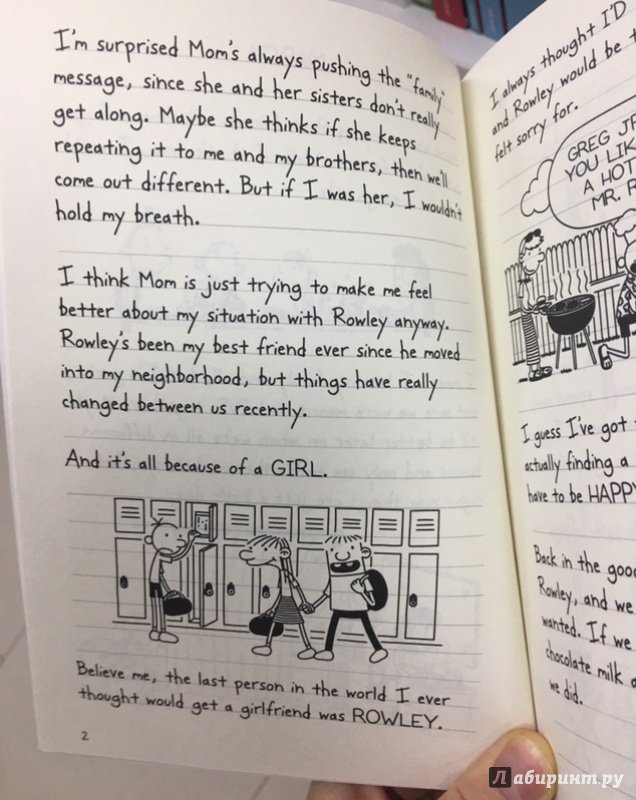 I'm surprised Mom's always pushing the "family"
message, since she and her sisters don't really
get along. Maybe she thinks if she keeps
repeating it to me and my brothers, then we'll
come out different. But if I was her, I wouldn't
hold my breath.
I think Mom is just trying to make me feel
better about my situation with Rowley anyway.
Rowley's been my best friend ever since he moved
into my neighborhood, but things have really
changed between us recently.
And it's all because of a GIRL.
Believe me, the last person in the world I ever
thought would get a girlfriend was ROWLEY.
2
I always thought I'D
and Rowley would be
felt sorry for.
GREG
YOU
A HOT
MR.
I guess I've got
actually finding a
have to be HAPPY
Back in the
Rowley, and we
wanted. If we
chocolate milk
we did.
Лабиринт.ру